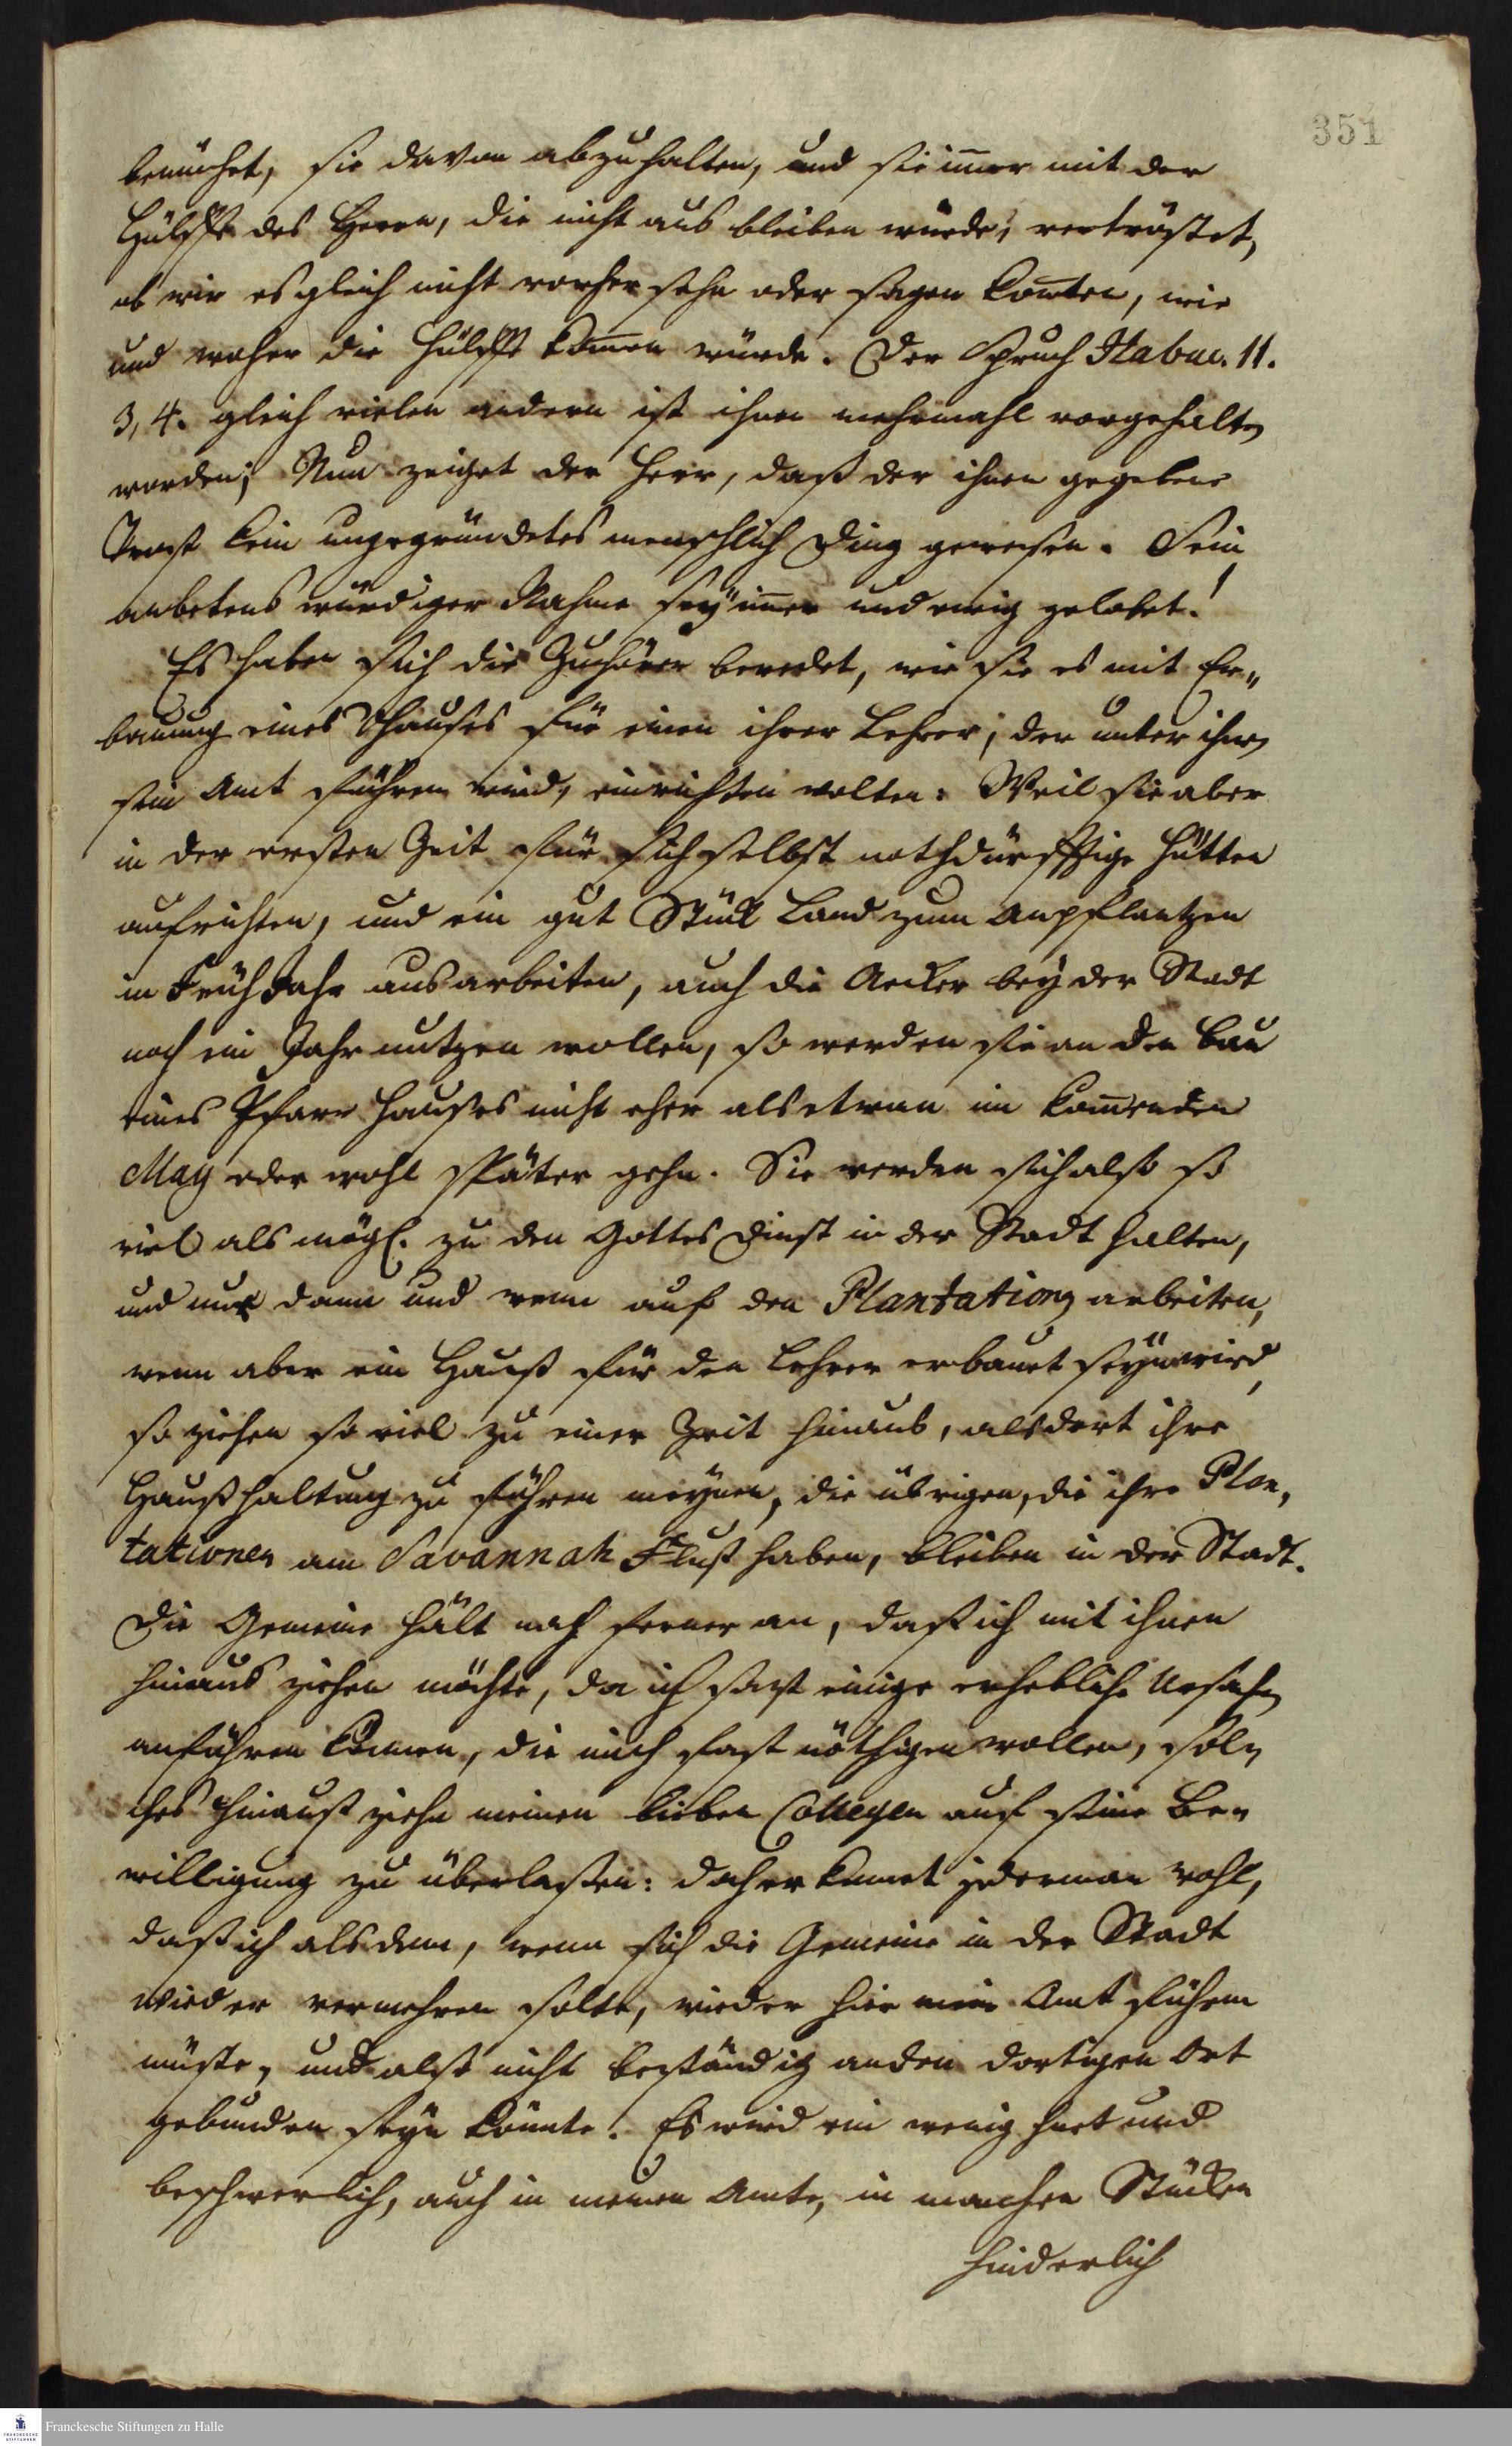 351
bemühet, sie davon abzuhalten, und sie im̄er mit der
Hülffe des Herrn, die nicht aus bleiben würde, vertröstet,
ob wir es gleich nicht vorher sehn oder sagen kon̄ten, wie
und woher die Hülffe kom̄en würde. Der Spruch Habac. II.
3, 4. gleich vielen andern ist ihnen mehrmahl vorgehalten
worden; Nun zeiget der Herr, daß der ihnen gegebene
Trost kein ungegründetes menschlich Ding gewesen. Sein
anbetens würdiger Nahme sey im̄er und ewig gelobet!
Es haben sich die Zuhörer beredet, wie sie es mit Er„
bauung eines Hauses für einen ihrer Lehrer, der unter ihnen
sein Amt führen wird, einrichten wolten: Weil sie aber
in der ersten Zeit für sich selbst nothdürfftige Hütten
aufrichten, und ein gut Stück Land zum Anpflantzen
im Früh Jahr ausarbeiten, auch die Aecker bey der Stadt
noch ein Jahr nutzen wollen, so werden sie an den Bau
eines Pfarr Hauses nicht eher als etwan im kom̄enden
May oder wohl später gehn. Sie werden sich also so
viel als mögl. zu den Gottes Dinst in der Stadt halten,
und nur dann und wenn auf den Plantationen arbeiten,
wenn aber ein Hauß für den Lehrer erbauet seyn wird,
so ziehen so viel zu einer Zeit hinaus, als dort ihre
Haußhaltung zu führen meynen, die übrigen, die ihre Plan„
tationen am Savannah Fluß haben, bleiben in der Stadt.
Die Gemeine hält noch ferner an, daß ich mit ihnen
hinaus ziehen möchte, da ich sonst einige erhebliche Ursachen
anführen können, die mich fast nöthigen wollen, sol„
ches hinauß ziehn meinen lieben Collegen auf seine Be„
willigung zu überlaßen: doch erkennet jederman wohl,
daß ich alsdenn, wenn sich die Gemeine in der Stadt
wieder vermehren solte, wieder hier mein Amt führen
müste, und also nicht beständig an den dortigen Ort
gebunden seyn könnte. Es wird ein wenig hart und
beschwerlich, auch in meinen Amte, in manchen Stücken
hinderlich
FRANCKESCHE STIFTUNGEN
Franckesche Stiftungen zu Halle